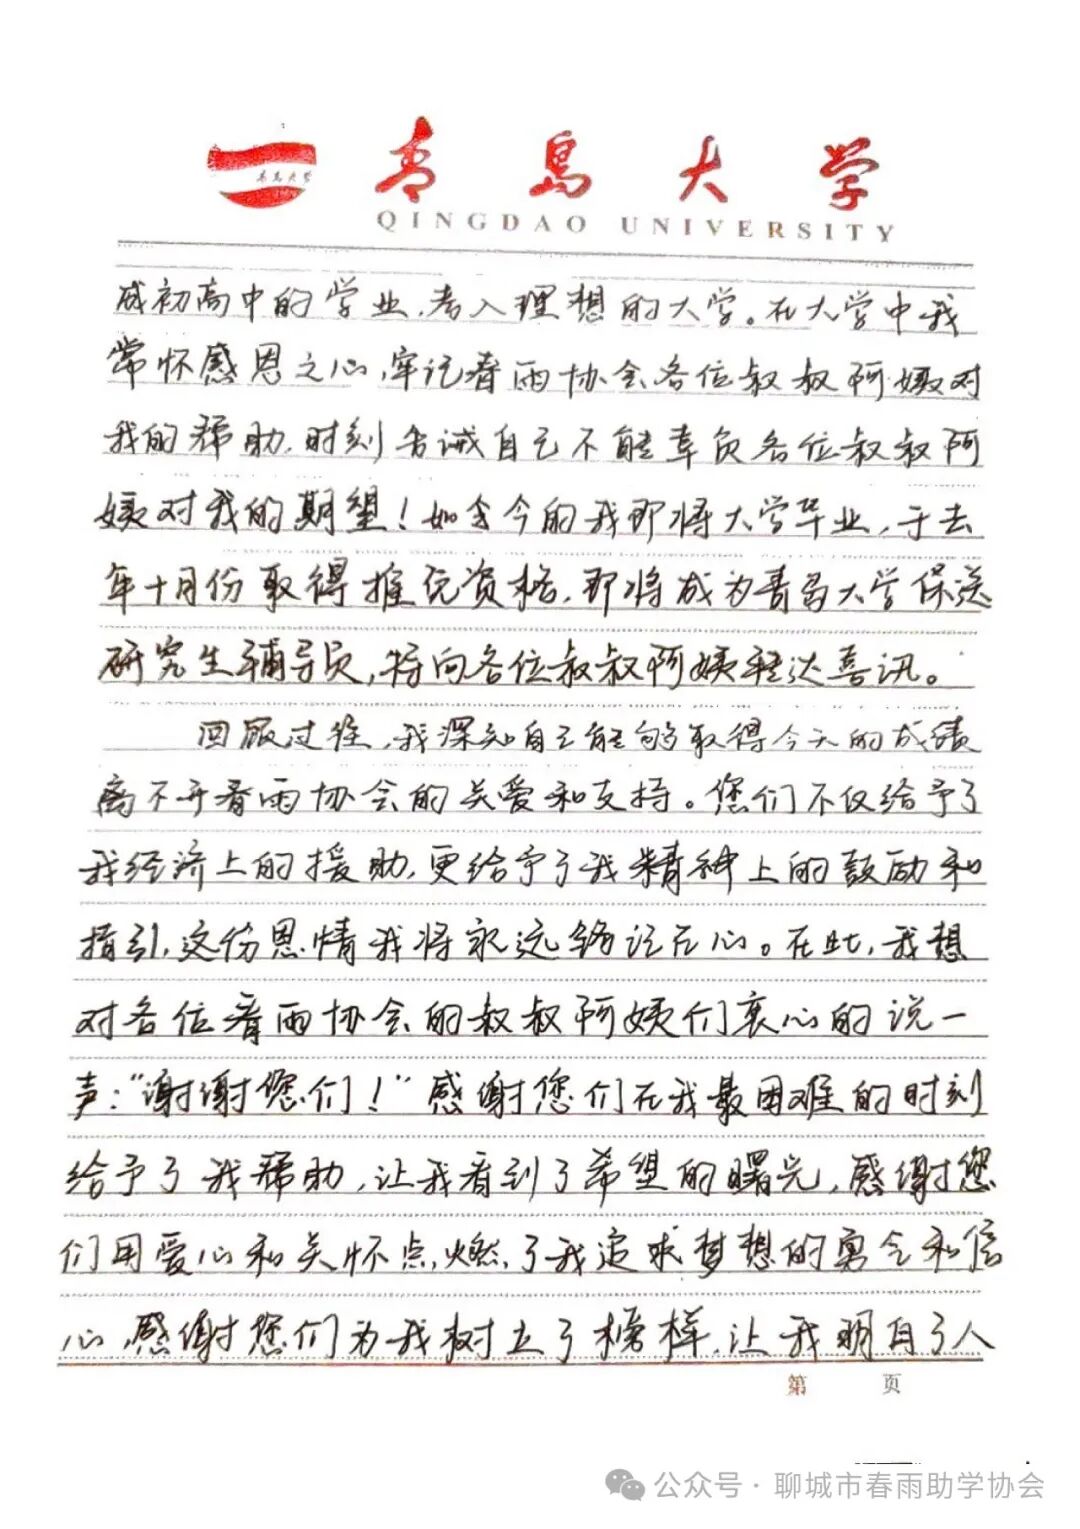 青岛大学
青岛大学
QINGDAO UNIVERSITY
成初高中的学业,考入理想的大学。在大学中我
常怀感恩之心,牢记春雨协会各位叔叔阿姨对
我的帮助,时刻告诫自己不能辜负各位叔叔阿
姨对我的期望!如今的我即将大学毕业,于去
年十月份取得推免资格,即将成为青岛大学保送
研究生辅导员,特向各位叔叔阿姨转达喜讯。
回顾过往,我深知自己能够取得今天的成绩
离不开春雨协会的关爱和支持。您们不仅给予了
我经济上的援助,更给予了我精神上的鼓励和
指引,这份恩情我将永远铭记在心。在此,我想
对各位春雨协会的叔叔阿姨们衷心的说一
声:"谢谢您们!"感谢您们在我最困难的时刻
给予了我帮助,让我看到了希望的曙光,感谢您
们用爱心和关怀点燃了我追求梦想的勇气和信
心,感谢您们为我树立了榜样,让我明白了人
第 页
公众号·聊城市春雨助学协会